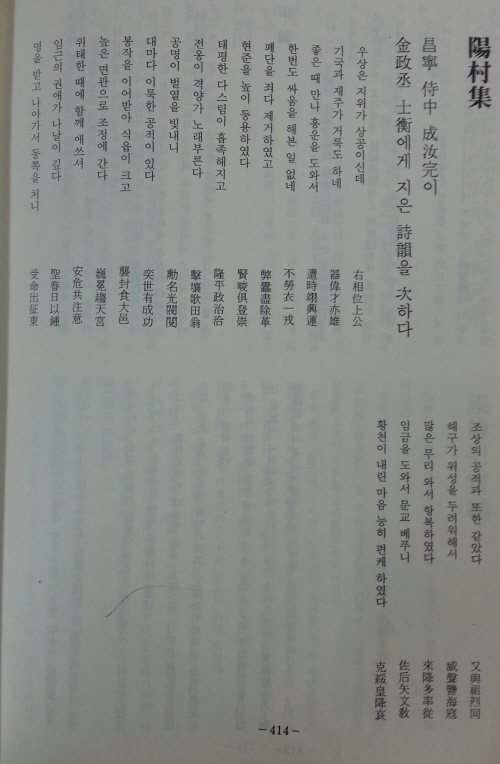 陽村集
昌寧 侍中 成汝完이
金政丞 士衡에게 지은 詩韻을 次하다
우상은 지위가 상공이신데 右相位上公
기국과 재주가 거룩도 하네 器偉才亦雄
좋은 때 만나 흥운을 도와서 遭時翊興運
한번도 싸움을 해본 일 없네 不勞衣一戎
폐단을 죄다 제거하였고 弊蠹盡除革
현준을 높이 등용하였다 賢畯俱登崇
태평한 다스림이 흡족해지고 隆平政治洽
전옹이 격양가 노래부른다 擊壤歌田翁
공명이 벌열을 빛내니 勳名光閥閱
대마다 이룩한 공적이 있다 奕世有成功
봉작을 이어받아 식읍이 크고 襲封食大邑
높은 면관으로 조정에 간다 巍冕趨天宮
위태한 때에 함께 애쓰셔 安危共注意
임금의 권애가 나날이 깊다 聖眷日以鍾
명을 받고 나아가서 동쪽을 치니 受命出征東
조상의 공적과 또한 같았다 又與祖烈同
해구가 위성을 두려워해서 威聲讋海寇
많은 무리 와서 항복하였다 來降多率從
임금을 도와서 문교 베푸니 佐后矢文敎
황천이 내린 마음 능히 편케 하였다 克綏皇降衷
-414-